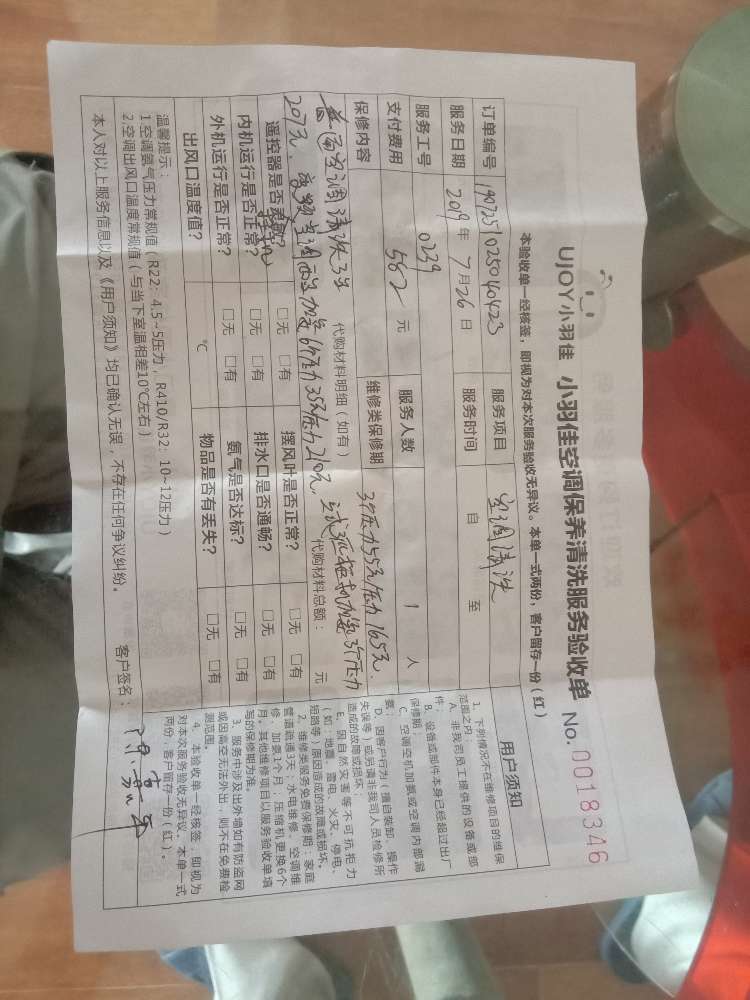 UJOY小羽佳 小羽佳空调保养清洗服务验收单 No. 0018346
本验收单一经核签，即视为对本次服务验收无异议。本单一式两份，客户留存一份（红）
订单编号 服务项目 空调清洗
服务日期 2019年7月26日 服务时间 自 至
服务工号 0239 服务人数 1 人
支付费用 582 元 维修类保修期
保修内容
3个压力55元/压力165元.
代购材料明细（如有） 代购材料总额： 元
207元.
遥控器是否 □无 □有 摆风叶是否正常？ □无 □有
内机运行是否正常？ □无 □有 排水口是否通畅？ □无 □有
外机运行是否正常？ □无 □有 氨气是否达标？ □无 □有
出风口温度值？ ℃ 物品是否有丢失？ □无 □有
温馨提示：
1空调氨气压力常规值（R22：4.5~5压力，R410/R32：10~12压力）
2空调出风口温度常规值（与当下室温相差10℃左右）
本人对以上服务信息以及《用户须知》均已确认无误，不存在任何争议纠纷。 客户签名：
用户须知
1、下列情况不在维修项目的维保
范围之内：
A、非我司员工提供的设备或部
件；
B、设备或部件本身已经超过出厂
保修期；
C、空调停机加氨或空调内部漏
氨；
D、因客户行为（擅自装卸、操作
失误等）或另请非我司人员检修所
造成的故障或损坏；
E、因自然灾害等不可抗拒力
（如：地震、雷电、火灾、停电、
短路等）原因造成的故障或损坏。
2、维修类服务免费保修期：家庭
管道疏通3天；水电维修、空调维
修、加氨1个月；压缩机更换6个
月。其他维修项目以服务验收单填
写的保修期为准。
3、服务中涉及出外墙如有防盗网
或因高空无法外出，则不在免费检
测范围。
4、本验收单一经核签，即视为
对本次服务验收无异议。本单一式
两份，客户留存一份（红）。